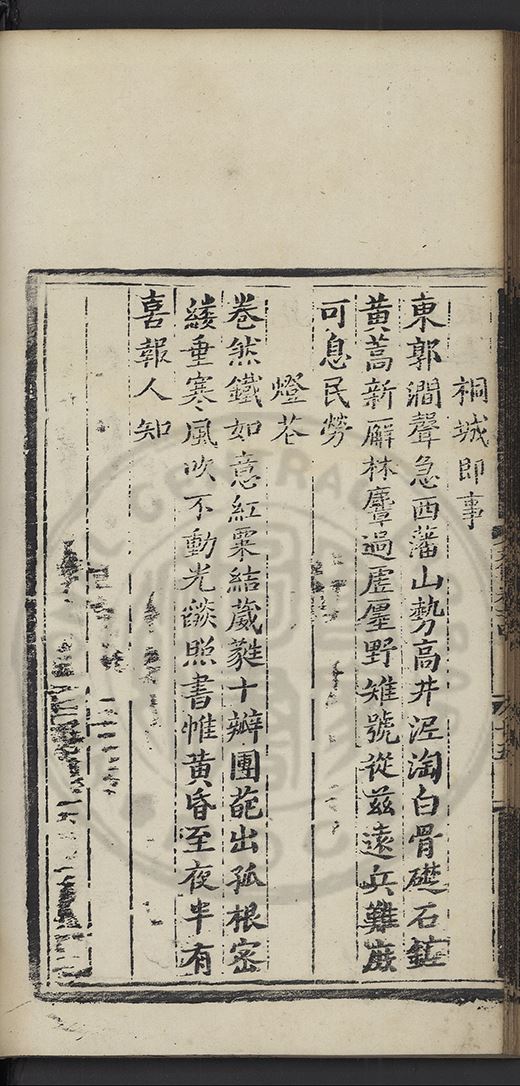 桐城即事
東郭澗聲急西藩山勢高井泥淘白骨礎石鋤
黃蒿新廨林麞過虛廛野雉號從茲遠兵難庶
可息民勞
燈花
卷然鐵如意紅粟結葳蕤十瓣團葩出孤根密
綫垂寒風吹不動光燄照書帷黃昏至夜半有
喜報人知